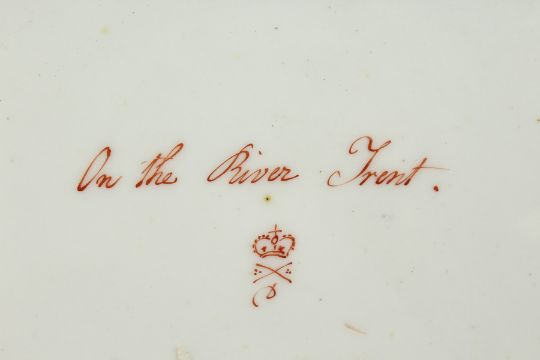 On the River Trent.
D